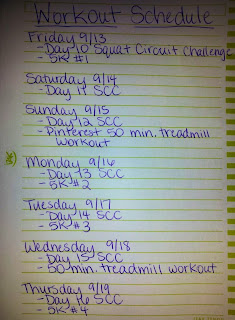 Workout Schedule
Friday 9/13
- Day 10 Squat Circuit Challenge
- 5K #1
Saturday 9/14
- Day 11 SCC
Sunday 9/15
- Day 12 SCC
- Pinterest 50 min. treadmill
workout
Monday 9/16
- Day 13 SCC
- 5K #2
Tuesday 9/17
- Day 14 SCC
- 5K #3
Wednesday 9/18
- Day 15 SCC
- 50 min. treadmill workout
Thursday 9/19
- Day 16 SCC
- 5K #4